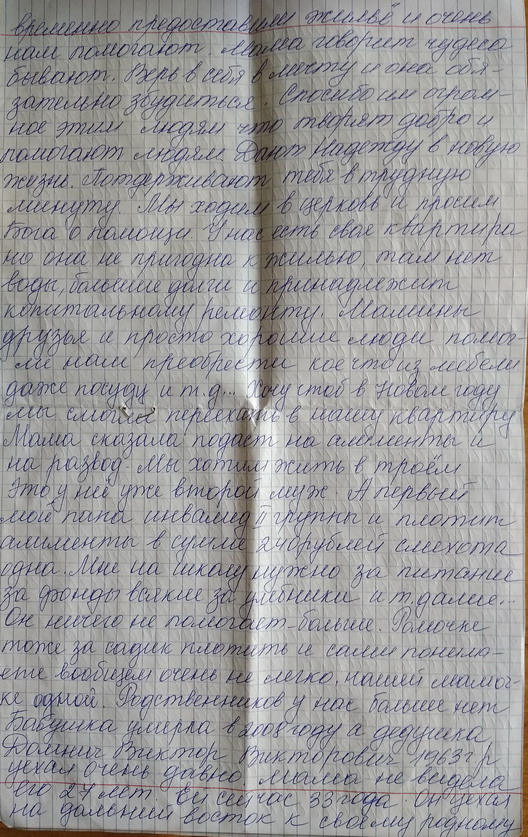 временно предоставили жильё и очень
нам помогают. Мама говорит чудеса
бывают. Верь в себя в мечту и она обя-
зательно збудиться. Спосибо им огром-
ное этим людям что творят добро и
помогают людям. Дают Надежду в новую
жизнь. Потдерживают тебя в трудную
минуту. Мы ходим в церковь и просим
Бога о помощи. У нас есть своя квартира
но она не пригодна к жилью, там нет
воды, большие долги и принадлежит
копитальному ремонту. Мамины
друзья и просто хорошие люди помог-
ли нам преобрести кое что из мебели
даже посуду и т.д... Хочу чтоб в Новом году
мы смогли переехать в нашу квартиру
Мама сказала подаст на алименты и
на развод. Мы хотим жить в троём
Это у неё уже второй муж. А первый
мой папа инвалид II группы и плотит
алименты в сумма 240рублей смехота
одна. Мне на школу нужно за питание
за фонды всякие за учебники и т.далие...
Он ничего не помогает больше. Ромочке
тоже за садик плотить и сами понема-
ете вообщем очень не легко нашей мамоч-
ке одной. Родственников у нас больше нет
Бабушка умерла в 2008 году а дедушка
Виктор Викторович 1963г/р
уехал очень давно мама не видела
его 27 лет. Ей сейчас 33 года. Он уехал
на дальний восток к своему родному